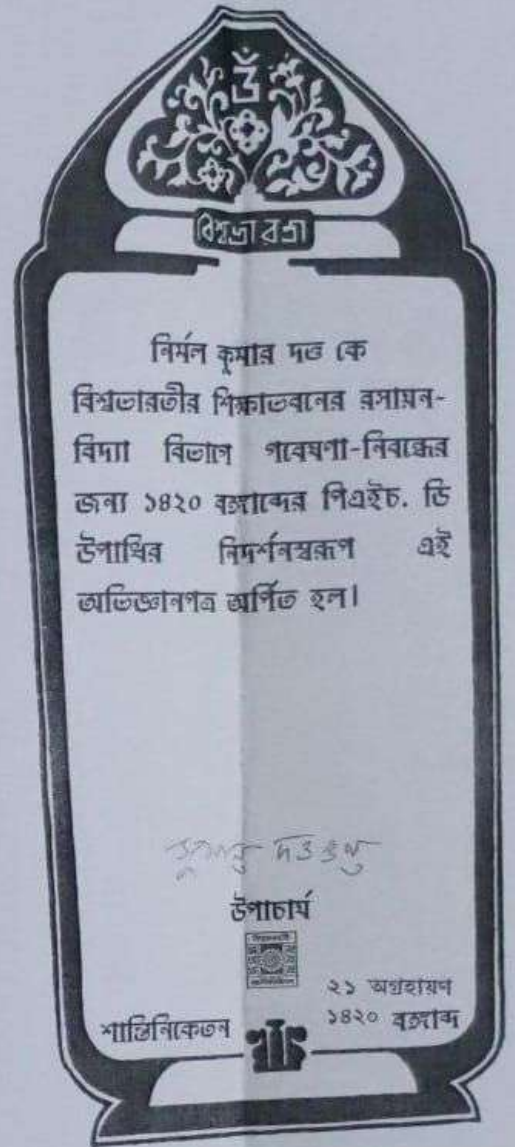 ওঁ
বিশ্বভারতী
নির্মল কুমার দত্ত কে
বিশ্বভারতীর শিক্ষাভবনের রসায়ন-
বিদ্যা বিভাগে গবেষণা-নিবন্ধের
জন্য ১৪২০ বঙ্গাব্দের পিএইচ. ডি
উপাধির নিদর্শনস্বরূপ এই
অভিজ্ঞানপত্র অর্পিত হল।
উপাচার্য
২১ অগ্রহায়ণ
শান্তিনিকেতন ১৪২০ বঙ্গাব্দ